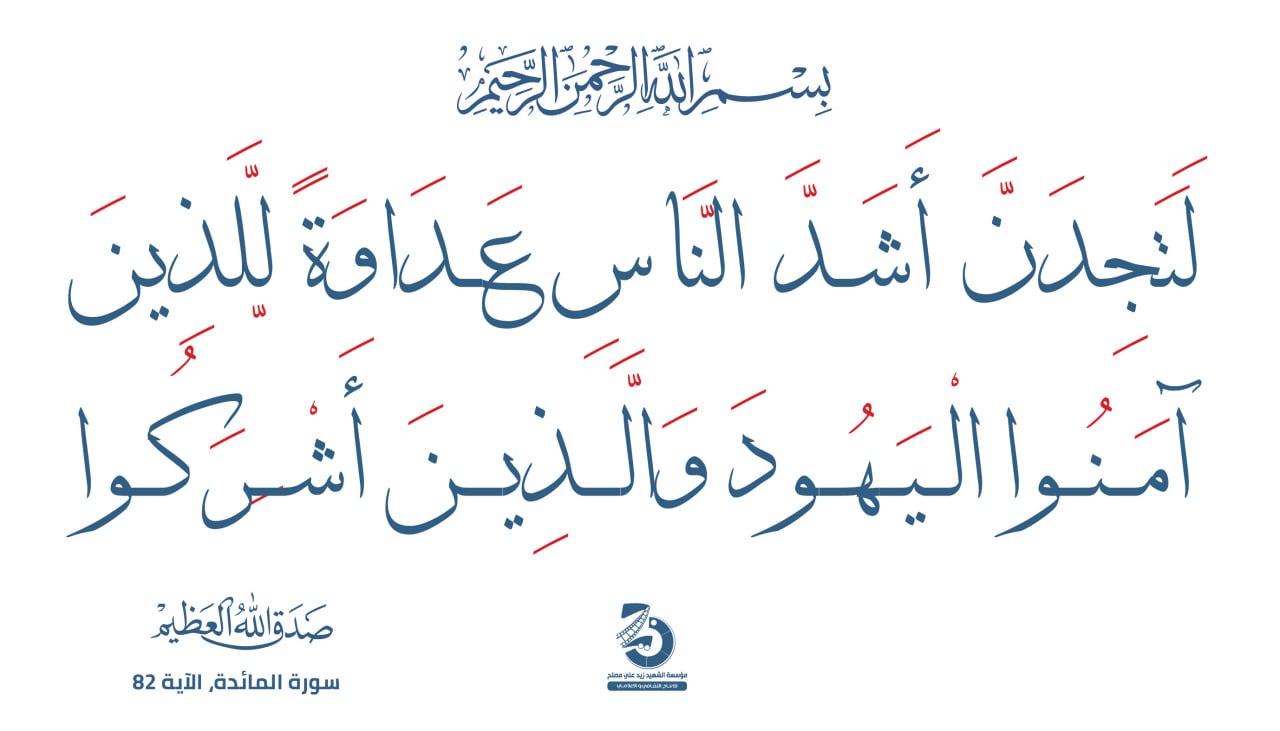 بِسْمِ اللَّهِ الرَّحْمَٰنِ الرَّحِيمِ
لَتَجِدَنَّ أَشَدَّ النَّاسِ عَدَاوَةً لِّلَّذِينَ
آمَنُوا الْيَهُودَ وَالَّذِينَ أَشْرَكُوا
صَدَقَ اللهُ العَظِيم
سورة المائدة, الآية 82
مؤسسة الشهيد زيد علي مصلح
للإنتاج الثقافي والإعلامي